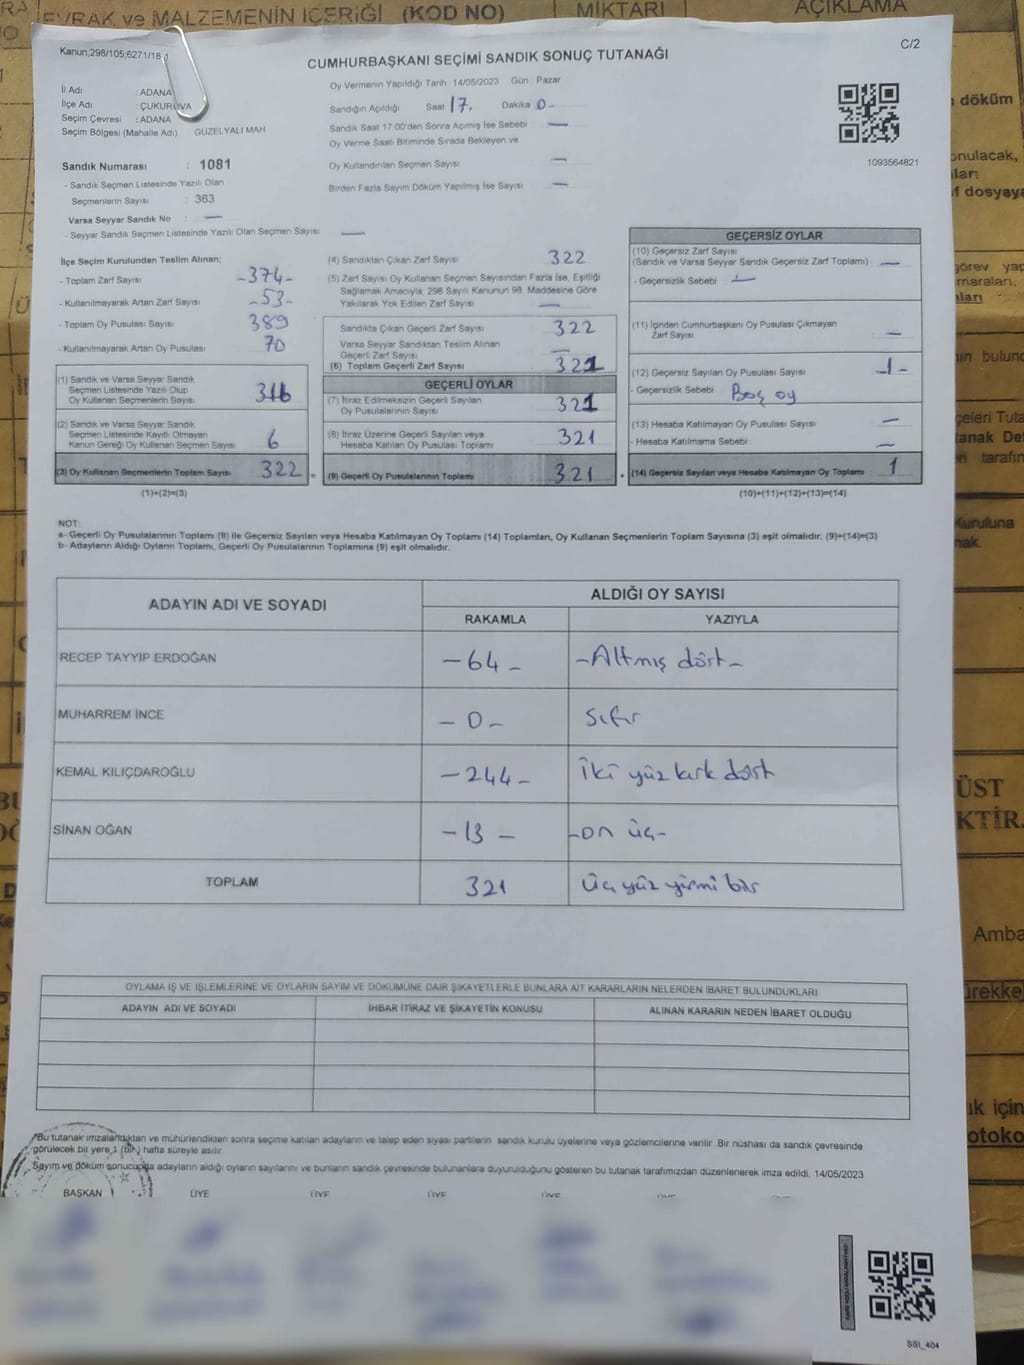 EVRAK ve MALZEMENİN İÇERİĞİ (KOD NO) MİKTARI AÇIKLAMA
Kanun;298/105;6271/18-1
C/2
CUMHURBAŞKANI SEÇİMİ SANDIK SONUÇ TUTANAĞI
İl Adı : ADANA
İlçe Adı : ÇUKUROVA
Seçim Çevresi : ADANA
Seçim Bölgesi (Mahalle Adı) GÜZELYALI MAH
Sandık Numarası : 1081
- Sandık Seçmen Listesinde Yazılı Olan
Seçmenlerin Sayısı : 363
Varsa Seyyar Sandık No : —
- Seyyar Sandık Seçmen Listesinde Yazılı Olan Seçmen Sayısı : —
Oy Vermenin Yapıldığı Tarih 14/05/2023 Gün Pazar
Sandığın Açıldığı Saat 17. Dakika 0-
Sandık Saat 17:00'den Sonra Açılmış İse Sebebi —
Oy Verme Saati Bitiminde Sırada Bekleyen ve
Oy Kullandırılan Seçmen Sayısı —
Birden Fazla Sayım Döküm Yapılmış İse Sayısı —
1093564821
İlçe Seçim Kurulundan Teslim Alınan;
- Toplam Zarf Sayısı -374-
- Kullanılmayarak Artan Zarf Sayısı -53-
- Toplam Oy Pusulası Sayısı 389
- Kullanılmayarak Artan Oy Pusulası 70
(1) Sandık ve Varsa Seyyar Sandık
Seçmen Listesinde Yazılı Olup
Oy Kullanan Seçmenlerin Sayısı 316
(2) Sandık ve Varsa Seyyar Sandık
Seçmen Listesinde Kayıtlı Olmayan
Kanun Gereği Oy Kullanan Seçmen Sayısı 6
(3) Oy Kullanan Seçmenlerin Toplam Sayısı 322 =
(1)+(2)=(3)
(4) Sandıktan Çıkan Zarf Sayısı 322
(5) Zarf Sayısı Oy Kullanan Seçmen Sayısından Fazla İse, Eşitliği
Sağlamak Amacıyla, 298 Sayılı Kanunun 98. Maddesine Göre
Yakılarak Yok Edilen Zarf Sayısı —
Sandıkta Çıkan Geçerli Zarf Sayısı 322
Varsa Seyyar Sandıktan Teslim Alınan
Geçerli Zarf Sayısı —
(6) Toplam Geçerli Zarf Sayısı 321
GEÇERLİ OYLAR
(7) İtiraz Edilmeksizin Geçerli Sayılan
Oy Pusulalarının Sayısı 321
(8) İtiraz Üzerine Geçerli Sayılan veya
Hesaba Katılan Oy Pusulası Toplamı 321
(9) Geçerli Oy Pusulalarının Toplamı 321 +
GEÇERSİZ OYLAR
(10) Geçersiz Zarf Sayısı
(Sandık ve Varsa Seyyar Sandık Geçersiz Zarf Toplamı) —
- Geçersizlik Sebebi : —
(11) İçinden Cumhurbaşkanı Oy Pusulası Çıkmayan
Zarf Sayısı —
(12) Geçersiz Sayılan Oy Pusulası Sayısı -1-
- Geçersizlik Sebebi : Boş oy
(13) Hesaba Katılmayan Oy Pusulası Sayısı —
- Hesaba Katılmama Sebebi : —
(14) Geçersiz Sayılan veya Hesaba Katılmayan Oy Toplamı 1
(10)+(11)+(12)+(13)=(14)
NOT:
a- Geçerli Oy Pusulalarının Toplamı (9) ile Geçersiz Sayılan veya Hesaba Katılmayan Oy Toplamı (14) Toplamları, Oy Kullanan Seçmenlerin Toplam Sayısına (3) eşit olmalıdır. (9)+(14)=(3)
b- Adayların Aldığı Oyların Toplamı, Geçerli Oy Pusulalarının Toplamına (9) eşit olmalıdır.
ADAYIN ADI VE SOYADI ALDIĞI OY SAYISI
RAKAMLA YAZIYLA
RECEP TAYYİP ERDOĞAN -64- -Altmış dört-
MUHARREM İNCE -0- Sıfır
KEMAL KILIÇDAROĞLU -244- İki yüz kırk dört
SİNAN OĞAN -13- -on üç-
TOPLAM 321 Üç yüz yirmi bir
OYLAMA İŞ VE İŞLEMLERİNE VE OYLARIN SAYIM VE DÖKÜMÜNE DAİR ŞİKAYETLERLE BUNLARA AİT KARARLARIN NELERDEN İBARET BULUNDUKLARI
ADAYIN ADI VE SOYADI İHBAR İTİRAZ VE ŞİKAYETİN KONUSU ALINAN KARARIN NEDEN İBARET OLDUĞU
*Bu tutanak imzalandıktan ve mühürlendikten sonra seçime katılan adayların ve talep eden siyasi partilerin sandık kurulu üyelerine veya gözlemcilerine verilir. Bir nüshası da sandık çevresinde
görülecek bir yere 1 (bir) hafta süreyle asılır.
Sayım ve döküm sonucunda adayların aldığı oyların sayılarını ve bunların sandık çevresinde bulunanlara duyurulduğunu gösteren bu tutanak tarafımızdan düzenlenerek imza edildi. 14/05/2023
BAŞKAN ÜYE ÜYE ÜYE ÜYE ÜYE
SSI_404
döküm
onulacak,
dosyaya
görev yap
maraları,
ları
ın bulund
tanak
tarafın
Kuruluna
nak.
ÜST
KTİR.
Amba
ürekke
ık için
otoko